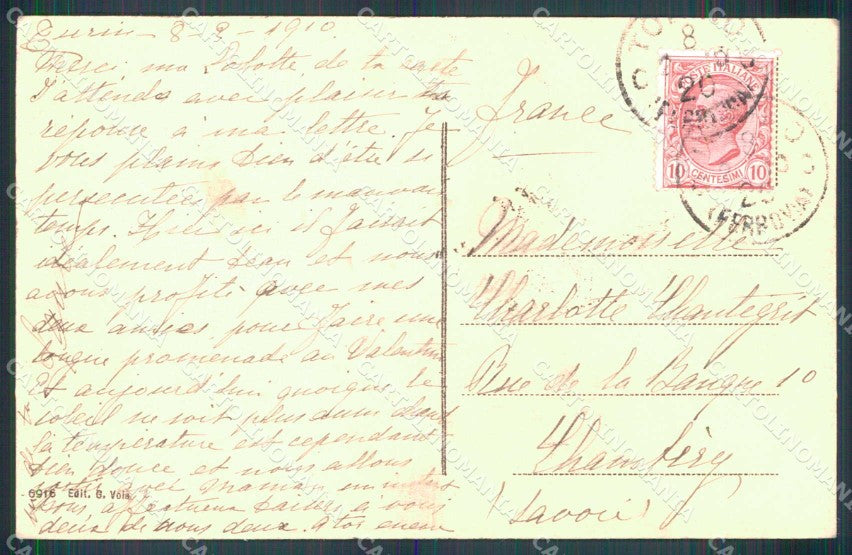 Turin 8-2-1910.
Merci, ma Lolotte de ta carte
J'attends avec plaisir ta
réponse à ma lettre. Je
vous plains bien d'être si
persecutées par le mauvais
temps. Hier ici il faisait
idéalement beau et nous
avons profité avec mes
deux amies pour faire une
longue promenade au Valentin
Et aujourd'hui quoique le
soleil ne soit plus aussi
la température est cependant
bien douce et nous allons
sortir avec maman
affectueux baisers à vous
deux de nous deux. A toi
6916 Edit. G. Vola
France
Mademoiselle
Charlotte Chantegrit
Rue de la Banque 10
Chambéry
(Savoie)
POSTE ITALIANE
10 CENTESIMI 10
TORINO
8
20
(FERROVIA)
CARTOLINOMANIA